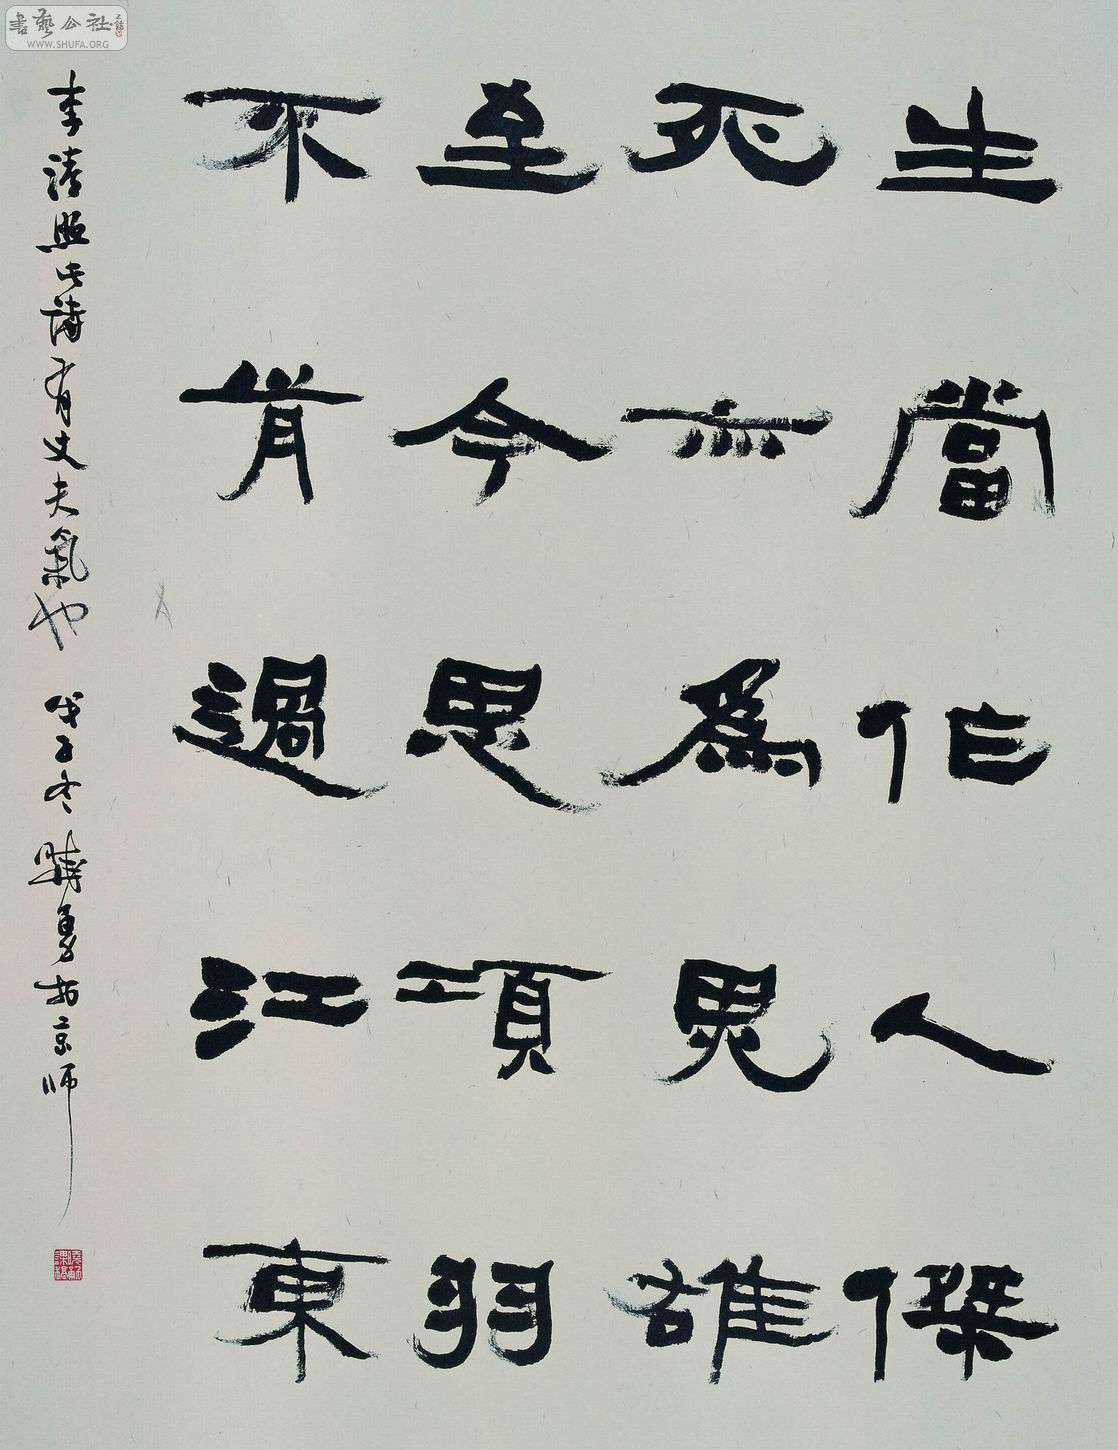 生當作人傑
死亦為鬼雄
至今思項羽
不肯過江東
李清照此詩有丈夫氣也 戊子冬 曉勇於京師
書藝公社
WWW.SHUFA.ORG